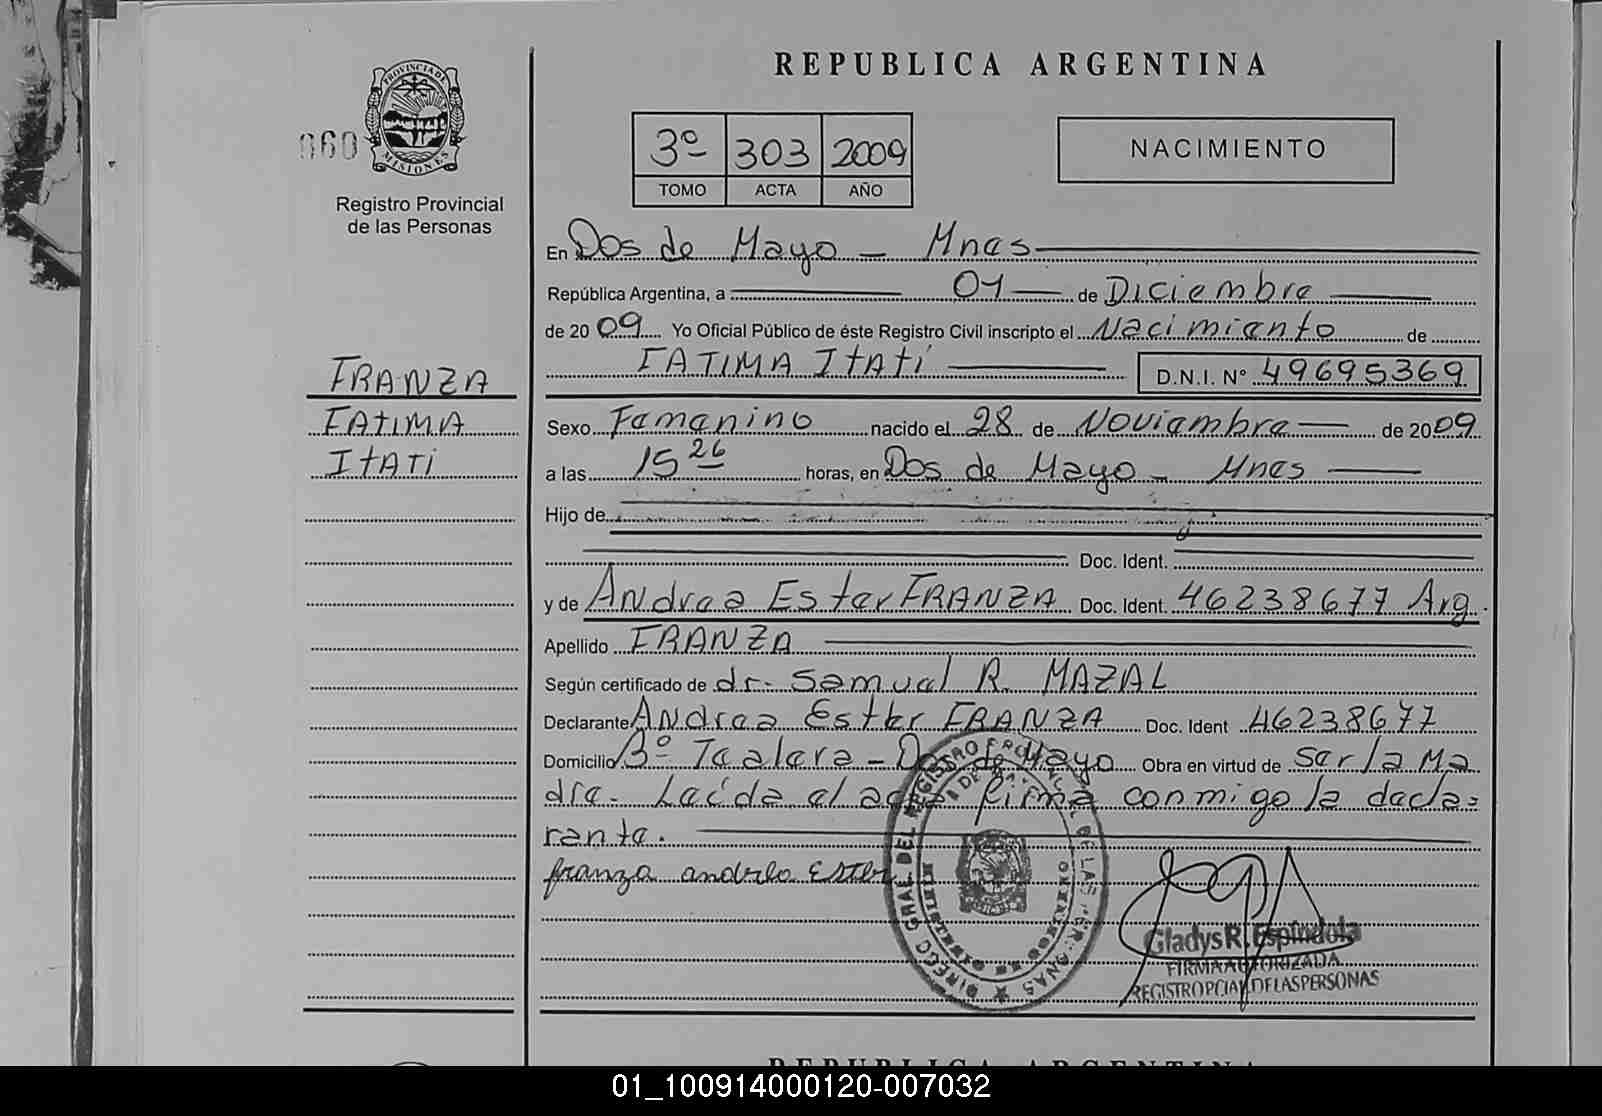 REPUBLICA ARGENTINA
PROVINCIA DE MISIONES
060
Registro Provincial
de las Personas
3º 303 2009
TOMO ACTA AÑO
NACIMIENTO
En Dos de Mayo - Mnes
República Argentina, a 01 de Diciembre
de 2009 Yo Oficial Público de éste Registro Civil inscripto el Nacimiento de
FATIMA ITATí D.N.I. Nº 49695369
FRANZA
FATIMA
ITATí
Sexo Femenino nacido el 28 de Noviembre de 2009
a las 15 26 horas, en Dos de Mayo - Mnes
Hijo de
Doc. Ident.
y de Andrea Ester FRANZA Doc. Ident. 46238677 Arg.
Apellido FRANZA
Según certificado de dr. Samuel R. MAZAL
Declarante Andrea Ester FRANZA Doc. Ident 46238677
Domicilio Bº Tealera - Dos de Mayo Obra en virtud de ser la Ma
dre. Leída el acta firma conmigo la decla=
rante.
franza andrea Ester
DIRECC GRAL DEL REGISTRO PROVINCIAL DE LAS PERSONAS
Gladys R. Espíndola
FIRMA AUTORIZADA
REGISTRO PCIAL DE LAS PERSONAS
REPUBLICA ARGENTINA
01_100914000120-007032